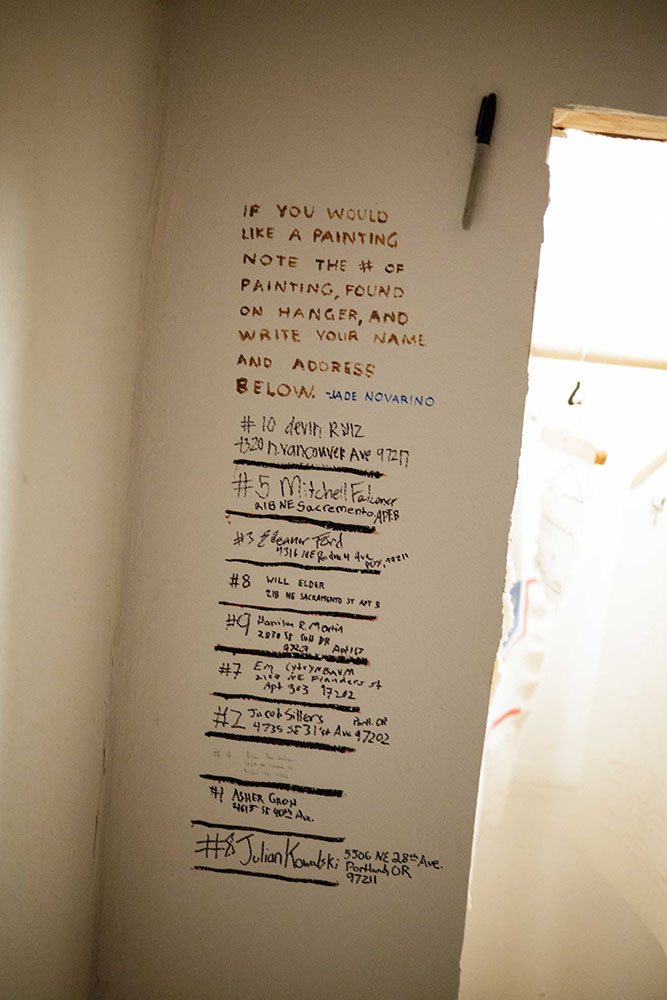 IF YOU WOULD
LIKE A PAINTING
NOTE THE # OF
PAINTING, FOUND
ON HANGER, AND
WRITE YOUR NAME
AND ADDRESS
BELOW. -JADE NOVARINO
#10 devin Ruiz
4320 n.vancouver Ave 97217
#5 Mitchell Falconer
218 NE Sacramento. APT.B
#3 Eleanor Ford
NE Ave
97211
#8 WILL ELDER
218 NE SACRAMENTO ST APT B
#9 Harrison R. Martin
2830 SE DR
Apt 157
#7 Em CYTRYNBAUM
NE Flanders st
Apt 303 97202
#2 Jacob Sillers Portl. OR
4735 SE 31st Ave 97202
#1 ASHER GRON
4615 SE 40th Ave.
#8 Julian Kowalski 5506 NE 28th Ave.
Portland, OR
97211